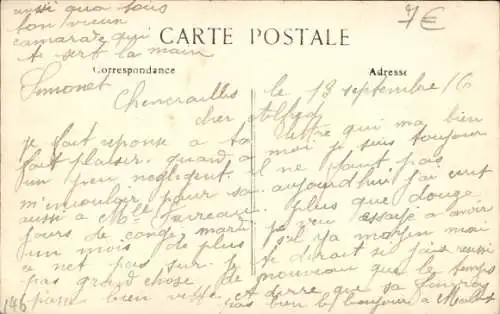 aussi qua tous
ton vieux
camarade qui
te sert la main
Simonet
7€
CARTE POSTALE
Correspondance
Adresse
le 18 septembre 16
cher Alfred
je fait reponse a ta lettre qui ma bien
fait plaisir. quand a moi je suis toujour
un peu negligent. il ne faut pas
m'envouloir pour sa. aujourdhui j'ai écrit
aussi a Mlle plus que douze
jours de congé, mardi j'ai essaye a avoir
un mois de plus s'il ya moyen mai
a net pas sur. je te dirait si j'ais reussi
pas grand chose de nouveau que le temps
passe bien vite. et dire que sa
pas bien le bonjour a
146